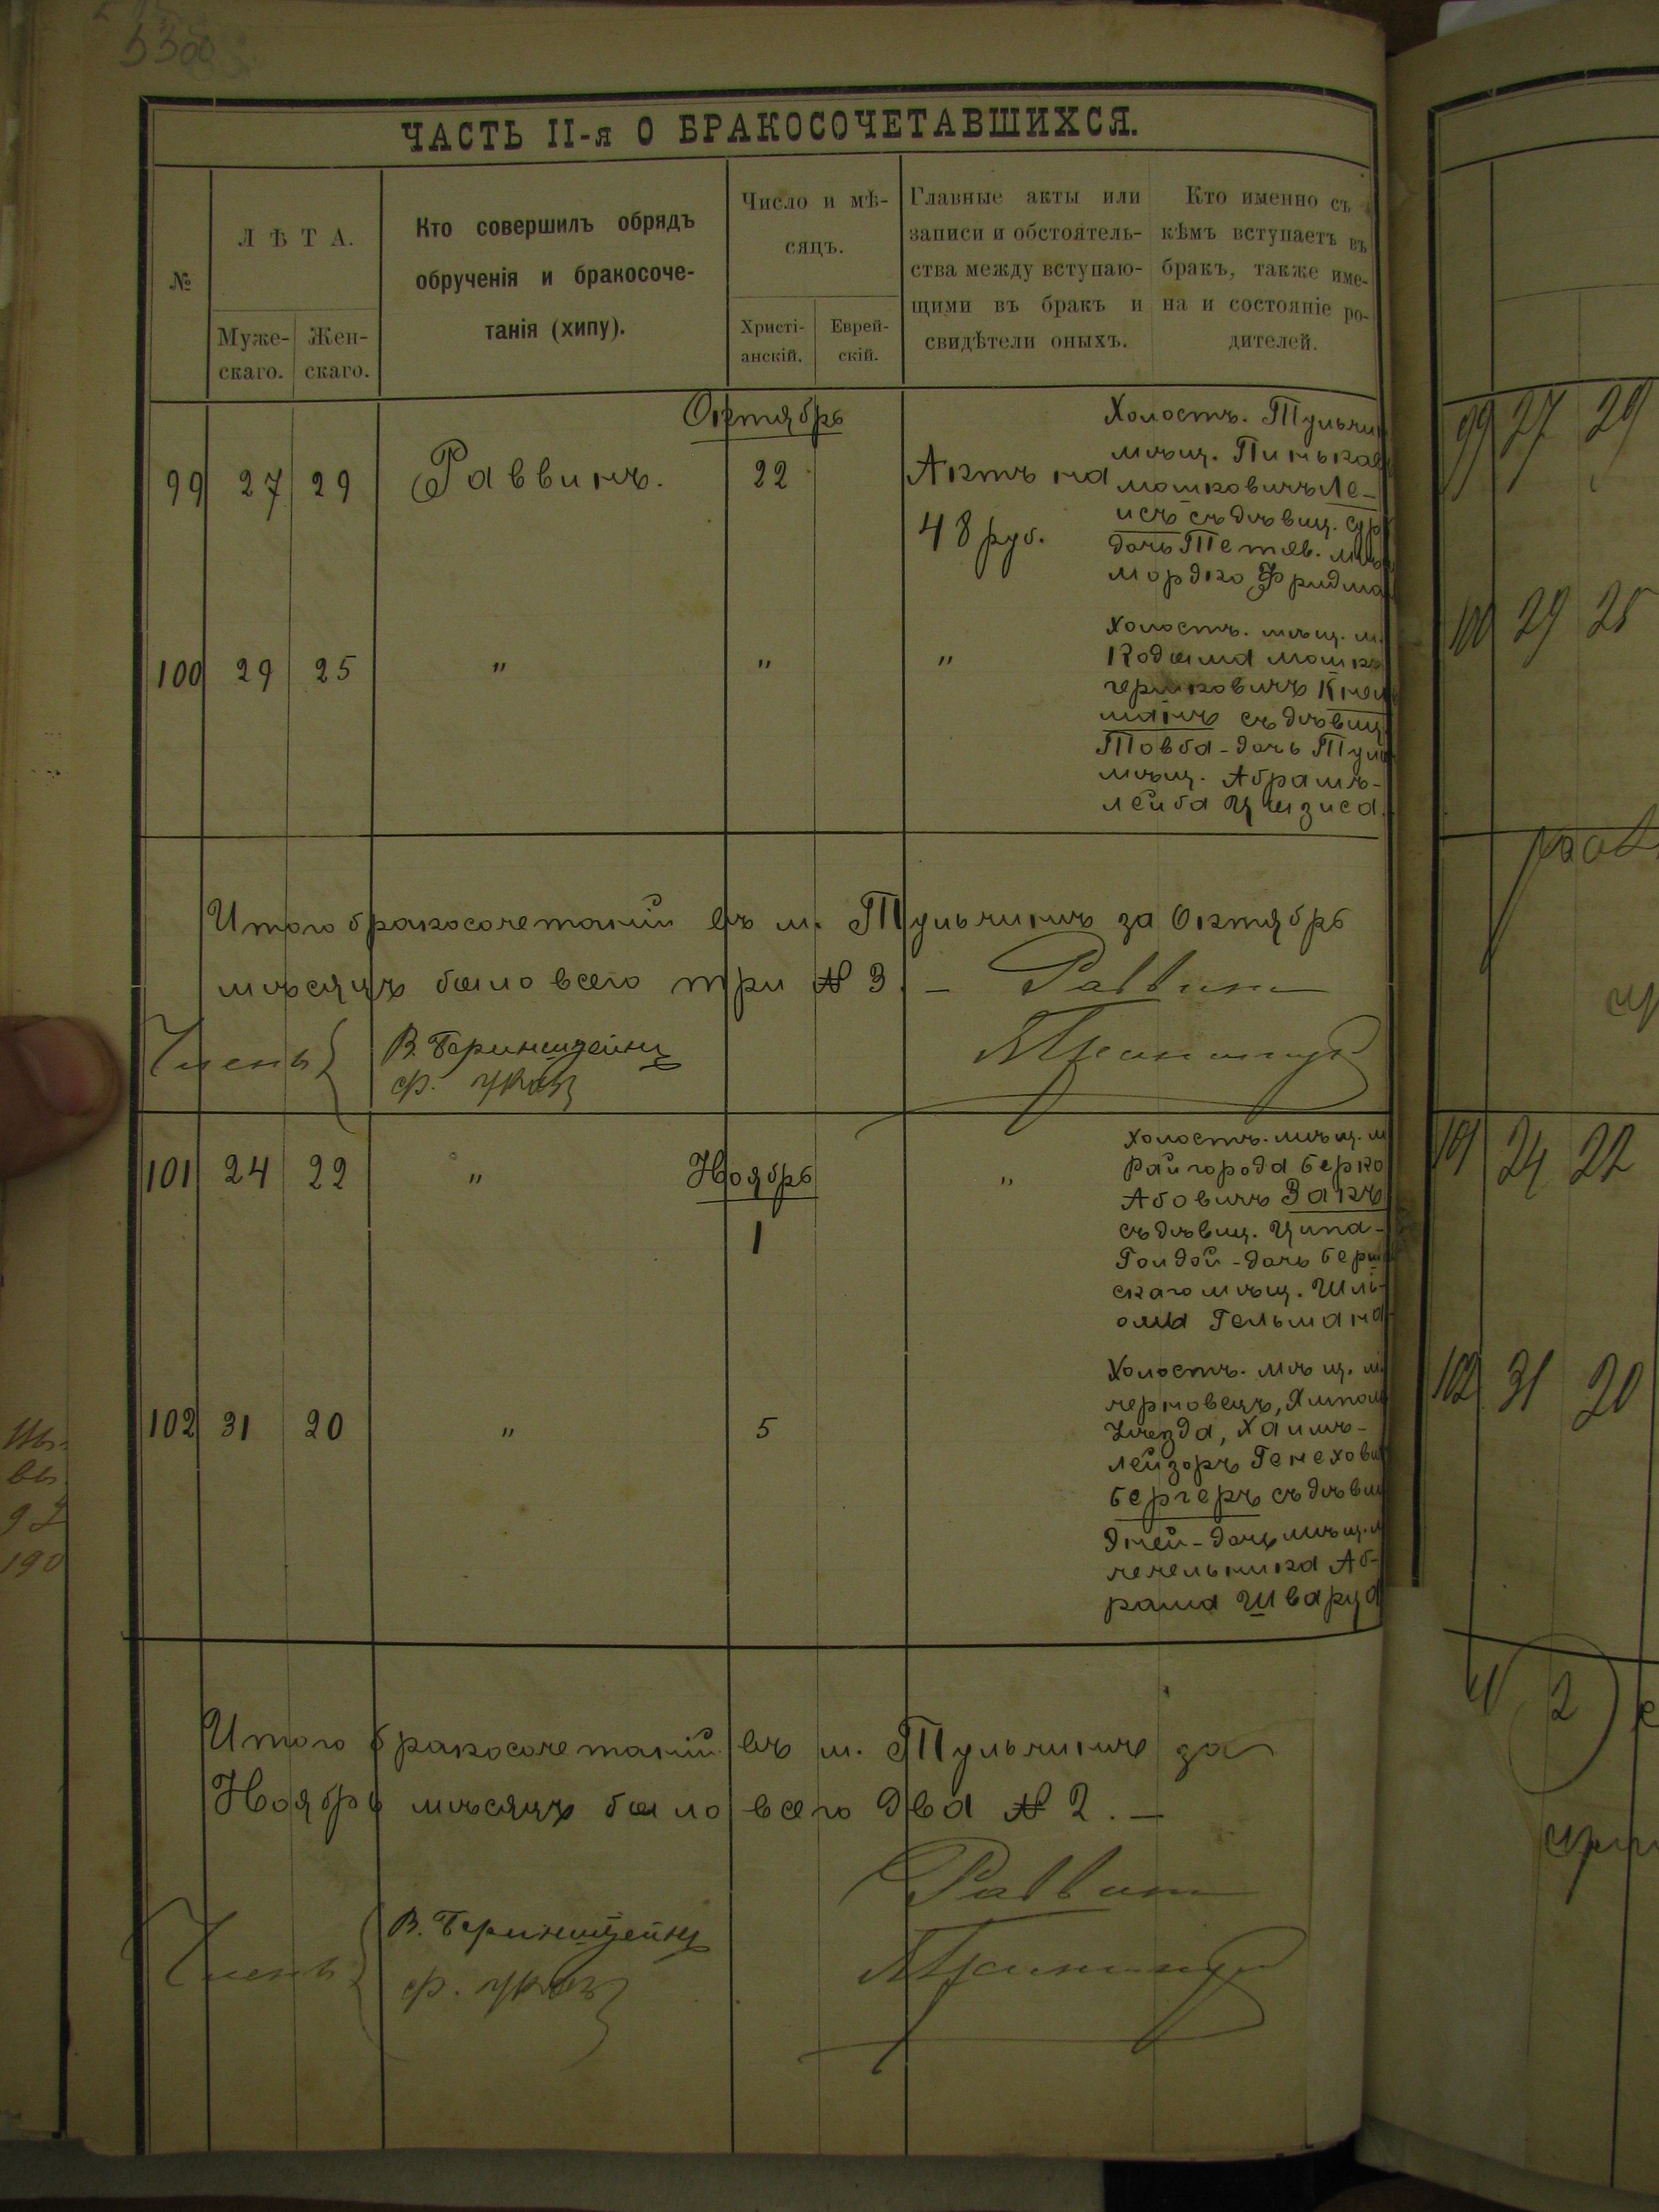 ЧАСТЬ II-я О БРАКОСОЧЕТАВШИХСЯ.
№
ЛѢТА.
Муже-
скаго.
Жен-
скаго.
Кто совершилъ обрядъ
обрученія и бракосоче-
танія (хипу).
Число и мѣ-
сяцъ.
Христі-
анскій.
Еврей-
скій.
Главные акты или
записи и обстоятель-
ства между вступаю-
щими въ бракъ и
свидѣтели оныхъ.
Кто именно съ
кѣмъ вступаетъ въ
бракъ, также име-
на и состояніе ро-
дителей.
Октябрь
99 27 29 Раввинъ. 22 Актъ на
48 руб.
Холостъ. Тульчин
мѣщ. Пинькас
Мошковичъ Ле-
исъ съ дѣвиц. Сур
дочь Тетіев. мѣщ
Мордко Фридма
100 29 25 " " "
Холостъ. мѣщ. м.
Кодыма Мошко
Гершковичъ
съ дѣвиц
Товба - дочь Туль
мѣщ. Абрамъ-
Лейба Цизиса.
Итого бракосочетаній въ м. Тульчинѣ за Октябрь
мѣсяцъ было всего три № 3. —
Раввинъ
Членъ
В. Беринштейнъ
101 24 22 " Ноябрь "
1
Холостъ. мѣщ. м
Райгорода Берко
Абовичъ Закъ
съ дѣвиц. Ципа-
Голдой - дочь Берш
скаго мѣщ. Шлі-
омы Гельмана
102 31 20 " 5
Холостъ. мѣщ. м.
Черновецъ, Ямпол
Уѣзда, Хаимъ-
Лейзоръ Генехови
Бергеръ съ дѣвиц
Эней - дочь мѣщ. м
Чечельника Аб-
рама Шварца
Итого бракосочетаній въ м. Тульчинѣ за
Ноябрь мѣсяцъ было всего два № 2. —
Раввинъ
Членъ
В. Беринштейнъ
99 27 29
100 29 25
101 24 22
102 31 20
2